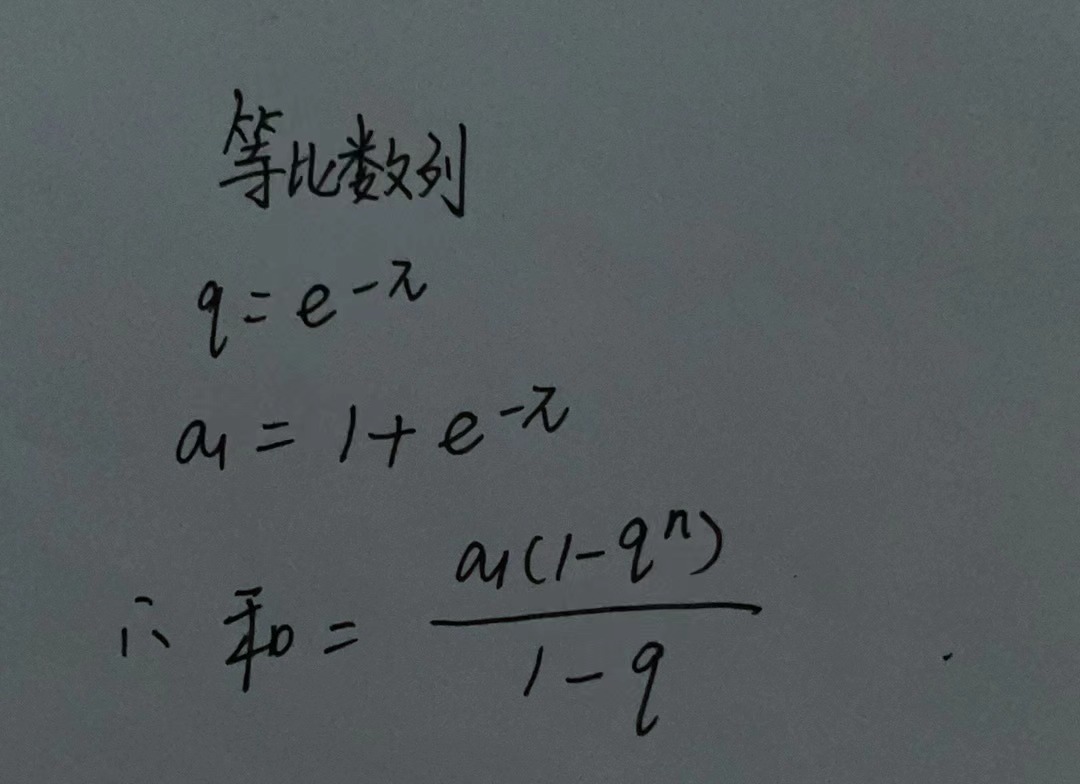 等比数列
q = e^{-π}
a₁ = 1 + e^{-π}
∴ 和 = \frac{a₁(1-q^n)}{1-q}